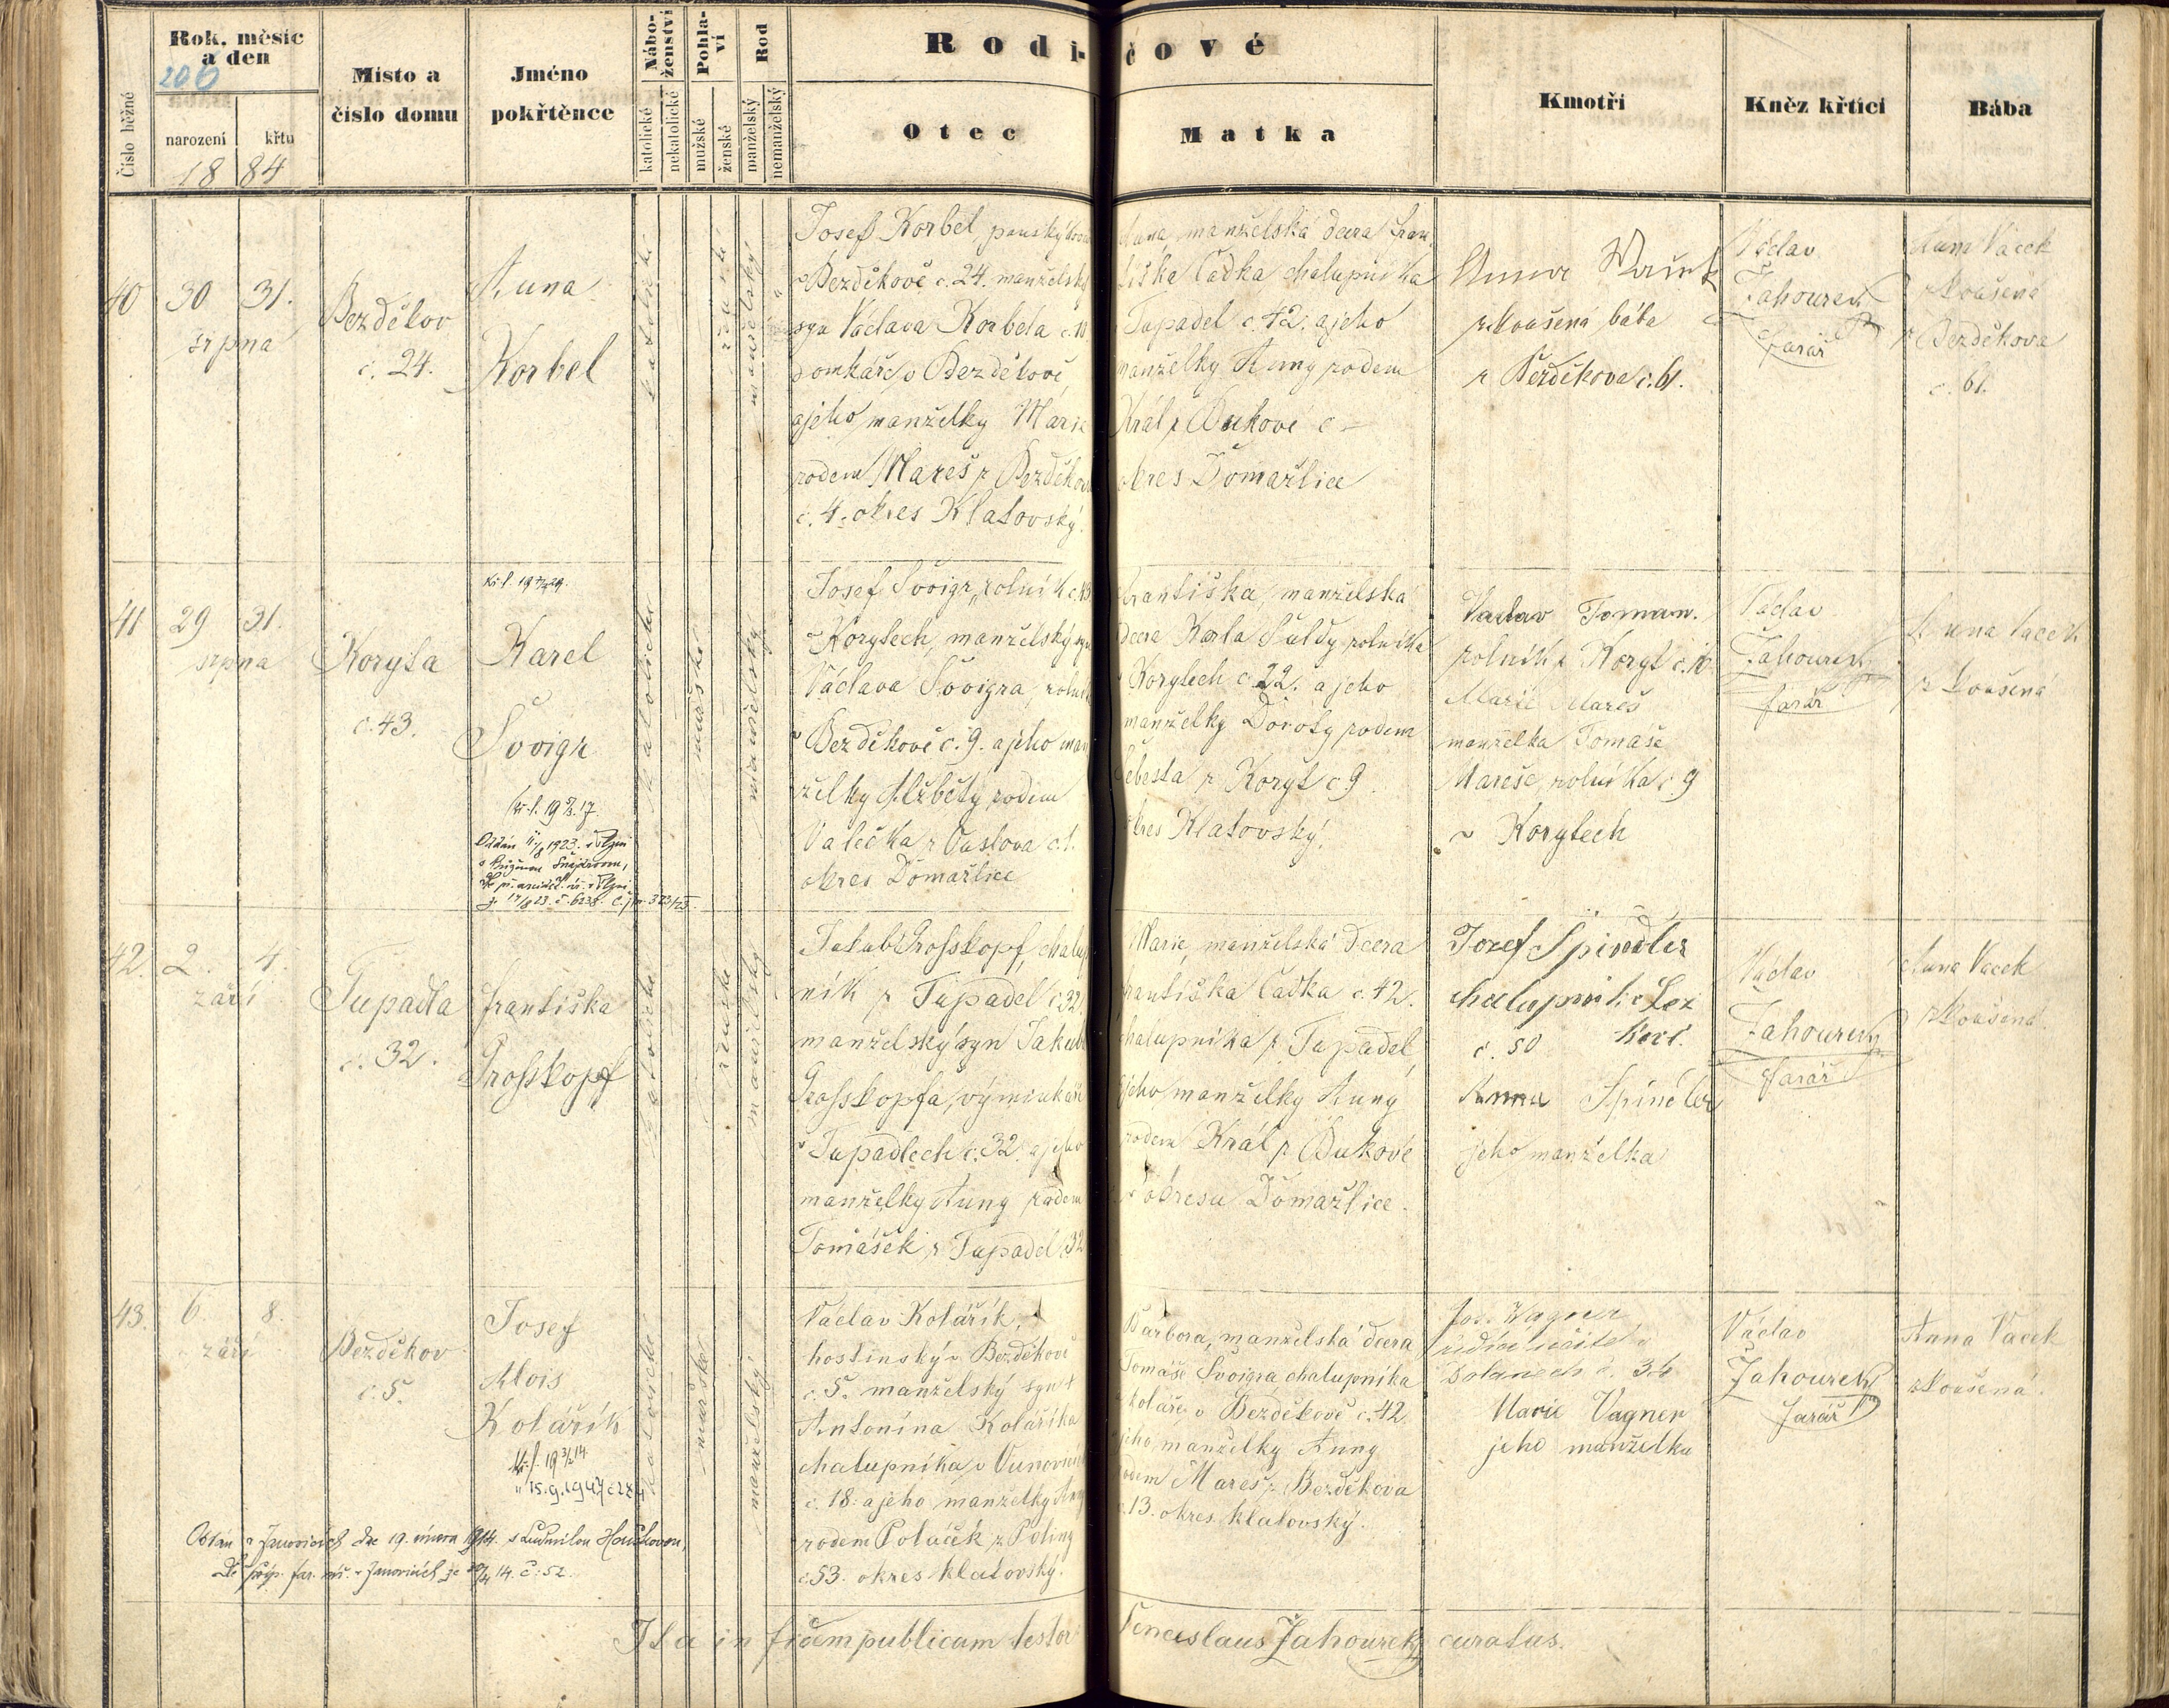 Rok, měsíc
a den
206
Číslo běžné
narození
křtu
18 84
Místo a
číslo domu
Jméno
pokřtěnce
Nábo-
ženství
katolické
nekatolické
Pohla-
ví
mužské
ženské
Rod
manželský
nemanželský
Rodi-
čové
Otec
Matka
Kmotři
Kněz křtící
Bába
40 30 31.
srpna
Bezděkov
č. 24.
Anna
Korbel
katolické
ženské
manželský
Josef Korbel, panský
v Bezděkově č. 24. manželský
syn Václava Korbela č. 10
domkáře v Bezděkově,
a jeho manželky Marie
rodem Mareš z Bezděkova
č. 4. okres Klatovský.
Anna, manželská dcera Fran
tiška Čadka chalupníka
z Tupadel č. 42. a jeho
manželky Anny rodem
Král z Bukové č –
okres Domažlice
Anna
zkoušená bába
z Bezděkova č. 61.
Václav
Jahourek
farář
Anna Vacek
zkoušená
z Bezděkova
č. 61.
41 29 31.
srpna
Koryta
č. 43.
Karel
Švoigr
katolické
mužské
manželský
Josef Švoigr, rolník č. 43
v Korytech, manželský syn
Václava Švoigra, rolníka
v Bezděkově č. 9. a jeho man
želky Alžběty rodem
Valečka z Úuslova č. 1.
okres Domažlice
Františka, manželská
dcera Karla Šuldy rolníka
v Korytech č. 22. a jeho
manželky Doroty rodem
Šebesta z Koryt č 9.
okres Klatovský.
Vaclav Toman.
rolník z Koryt č. 10.
Marie Mareš
manželka Tomaše
Mareše, rolníka č. 9
v Korytech
Václav
Jahourek
farář
Anna Vacek
zkoušená
42. 2. 4.
září
Tupadla
č. 32.
Františka
Grosskopf
katolické
ženské
manželský
Jakub Grosskopf, chalup
ník z Tupadel č. 32.
manželský syn Jakuba
Grosskopfa, výminkáře
v Tupadlech č. 32. a jeho
manželky Anny rodem
Tomášek z Tupadel 32
Marie, manželská dcera
Františka Čadka č. 42.
chalupníka z Tupadel,
a jeho manželky Anny
rodem Král z Bukové
v okresu Domažlice.
Josef Spindler
chalupník
č. 50
Anna Spindler
jeho manželka
Václav
Jahourek
farář
Anna Vacek
zkoušená.
43. 6. 8.
září
Bezděkov
č. 5.
Josef
Alois
Kolářík
15.9.1947
katolické
mužské
manželský
Václav Kolářík,
hostinský v Bezděkově
č. 5. manželský syn
Antonína Koláříka
chalupníka v
č. 18. a jeho manželky Anny
rodem Poláček z Poliny
č 53. okres klatovský.
Barbora, manželská dcera
Tomáše Švoigra, chalupníka
koláře v Bezděkově č. 42
a jeho manželky Anny
rodem Mareš z Bezděkova
č. 13. okres klatovský.
Jos. Wagner
řídící učitel v
Dolanech č. 34
Marie Vagner
jeho manželka
Václav
Jahourek
farář
Anna Vacek
zkoušená.
Oddán v Janovicích dne 19. února 1914. s Ludmilou Houškovou,
Ita in fidem publicam testor Venceslaus Jahourek curatus.